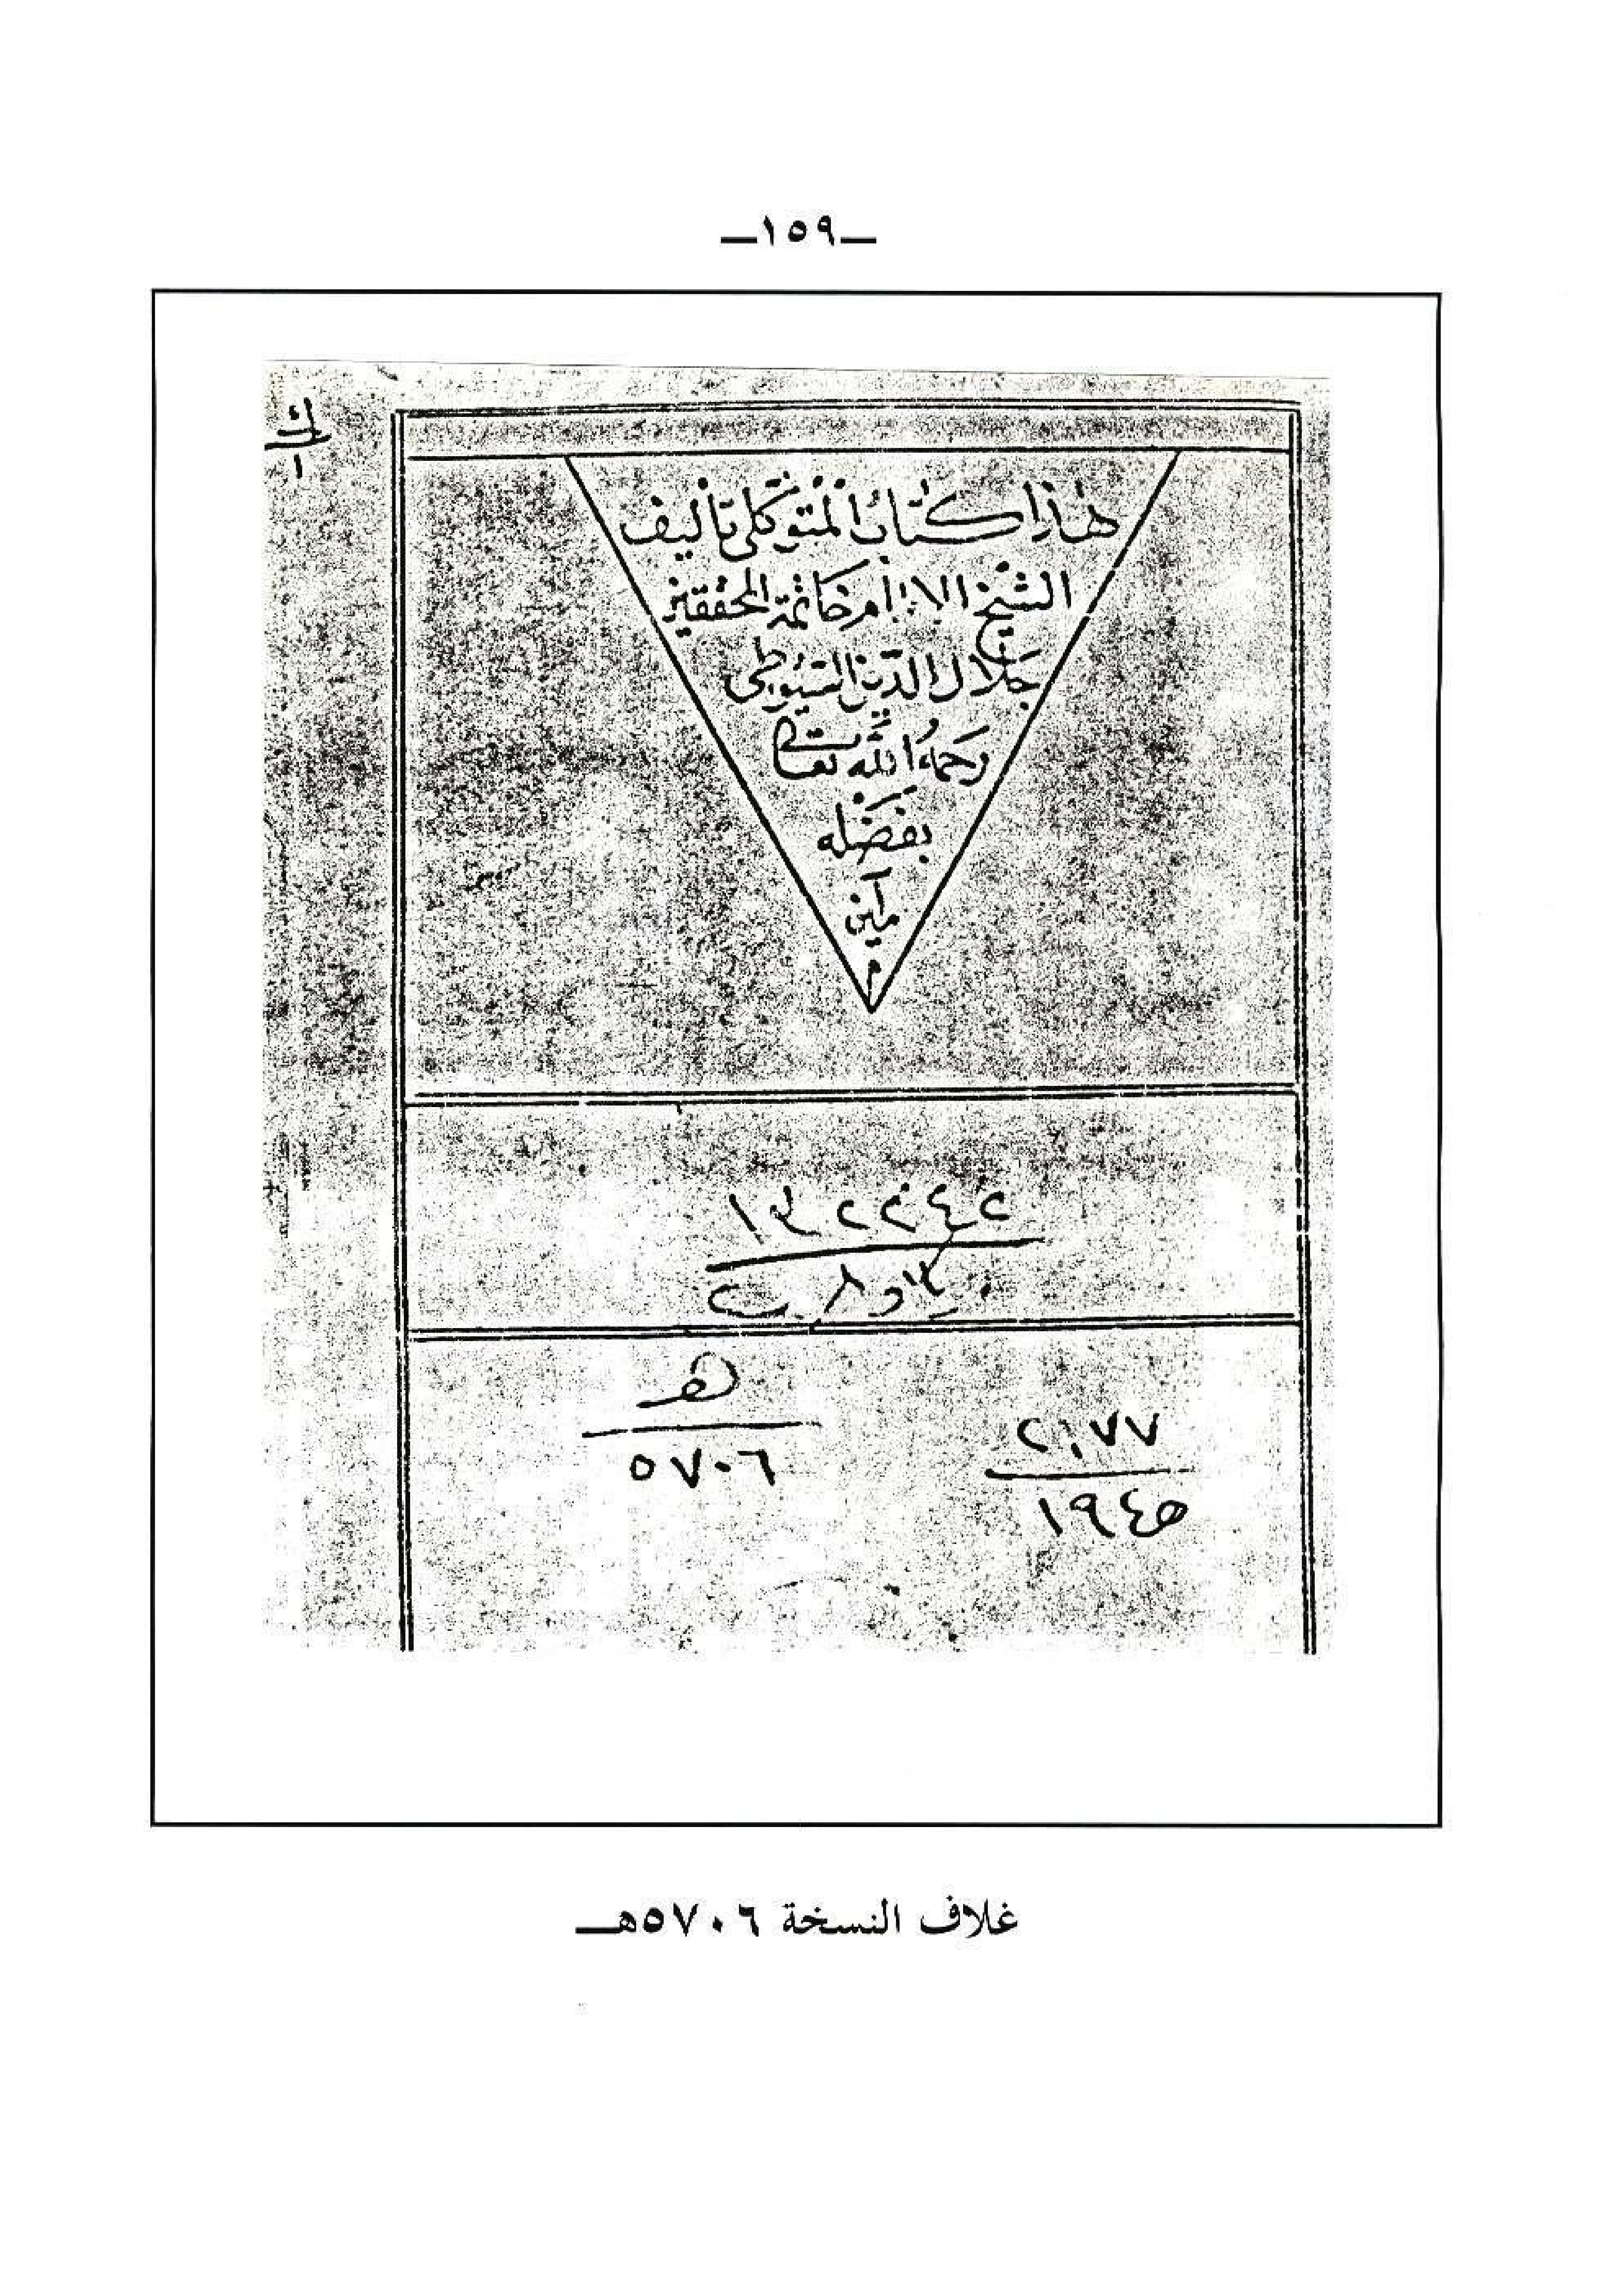 —١٥٩—
ك
١
هذا كتاب المتوكلي تأليف
الشيخ الامام خاتمة المحققين
جلال الدين السيوطي
رحمه الله تعالى
بفضله
آمين
م
هـ
٥٧٠٦
٢١٧٧
١٩٤٥
غلاف النسخة ٥٧٠٦هـ